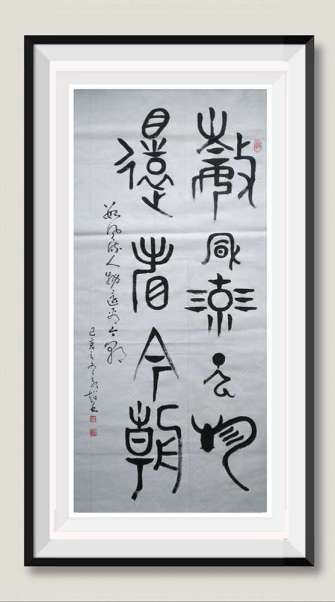 數風流人物
還看今朝
數風流人物還看今朝
己亥之冬